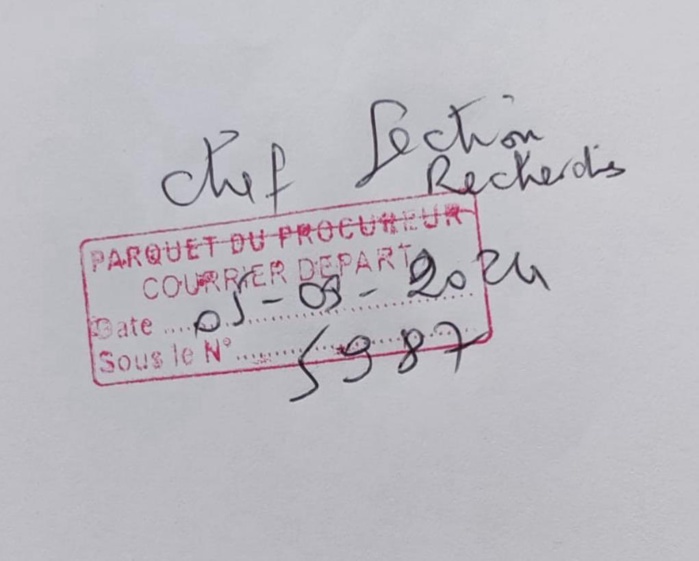 Chef Section
Recherches
PARQUET DU PROCUREUR
COURRIER DEPART
Date ..... 05-09-2024
Sous le N° ..... 5987